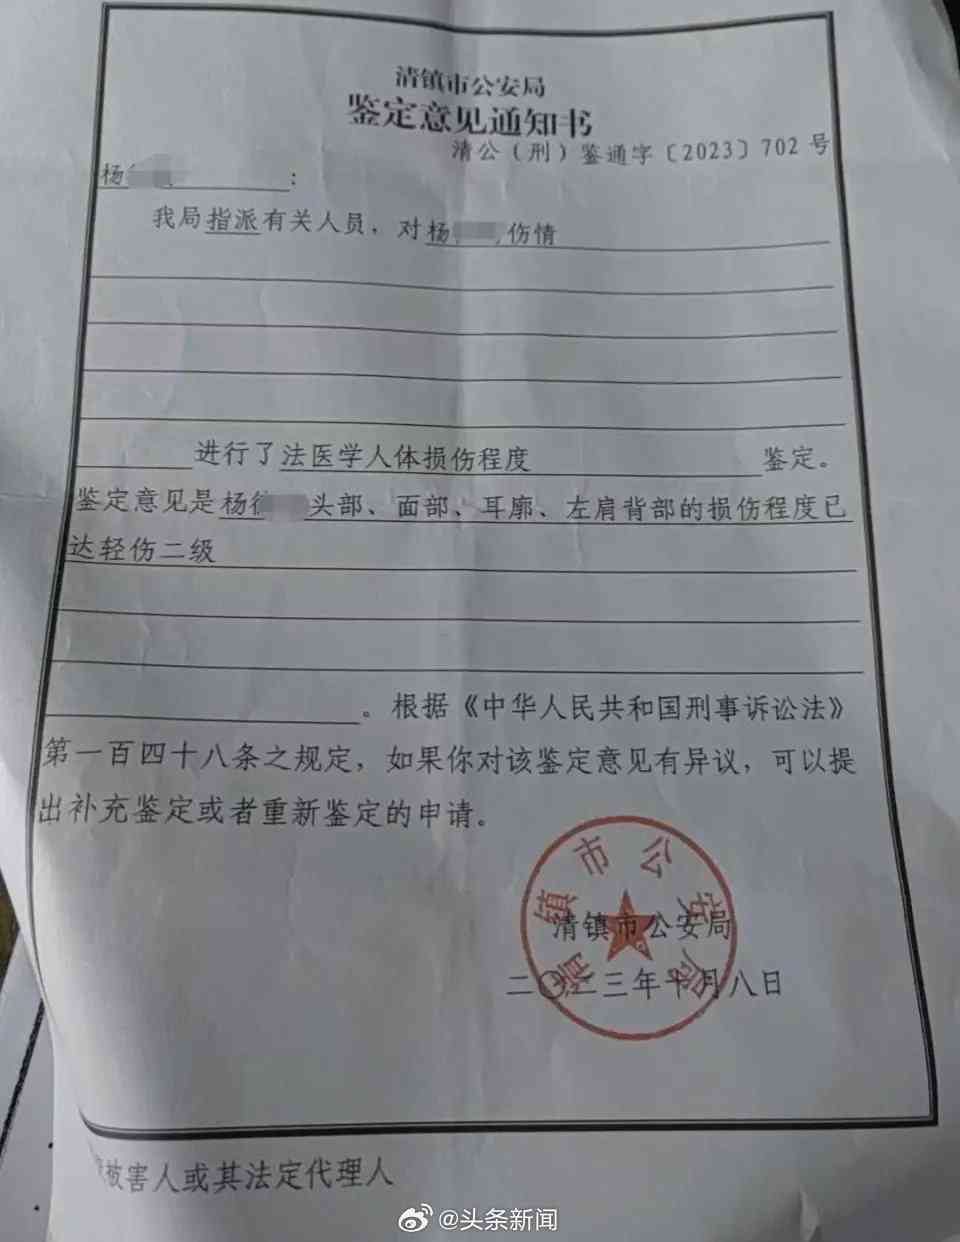 清镇市公安局
鉴定意见通知书
清公（刑）鉴通字〔2023〕702号
杨　　　：
我局指派有关人员，对杨　　伤情
进行了法医学人体损伤程度　　　鉴定。
鉴定意见是杨　　头部、面部、耳廓、左肩背部的损伤程度已
达轻伤二级
。根据《中华人民共和国刑事诉讼法》
第一百四十八条之规定，如果你对该鉴定意见有异议，可以提
出补充鉴定或者重新鉴定的申请。
清镇市公安局
清镇市公安局
二〇二三年十月八日
被害人或其法定代理人
@头条新闻